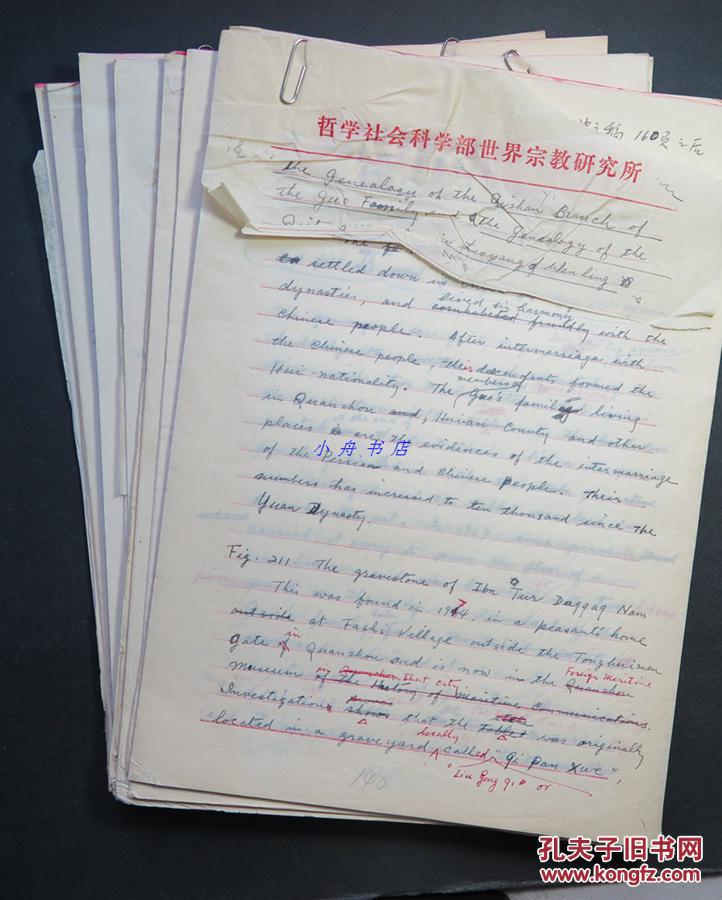 160页之后
哲学社会科学部世界宗教研究所
the Genealogy of the Qishan Branch of
the Guo Family and the Genealogy of the
The in
to settled down in
dynasties, and lived in harmony cohabited friendly with the
Chinese people. After intermarriage with
the Chinese people, their descendents formed the
Hui nationality. The members of Guo's family living
in Quanzhou and, Huian County and other
places are the evidences of the intermarriage
of the Persian and Chinese peoples. Their
numbers has increased to ten thousand since the
Yuan Dynasty.
Fig. 211 The gravestone of Ibn Tur Daqqaq Nam
This was found in in a peasant's home
outside at Fashi Village outside the
gate in Quanzhou and is now in the Quanzhou Foreign Meritime
Museum of the History of Maritime Communications. in that city.
Investigation shows that the tablet was originally
located in a graveyard locally called "Qi Pan Xue",
"Liu Gong qi" or
140
小舟书店
孔夫子旧书网
www.kongfz.com